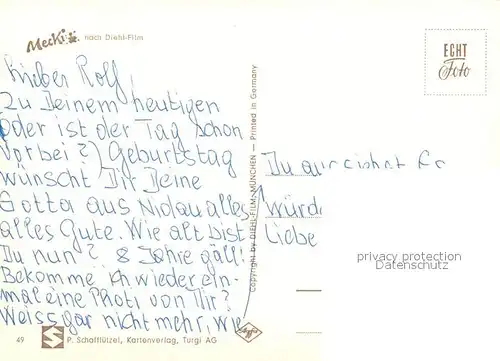 Mecki nach Diehl-Film
ECHT
Foto
Lieber Rolf,
Zu Deinem heutigen
(oder ist der Tag schon
vorbei?) Geburtstag
wünscht Dir Deine
Gotta aus Nidau alles
alles Gute. Wie alt bist
Du nun? 8 Jahre gäll!
Bekomme ich wieder ein-
mal eine Photi von Dir?
Weiss gar nicht mehr, wie
Du
würde
Liebe
Copyright by DIEHL-FILM, MÜNCHEN — Printed in Germany
privacy protection
Datenschutz
49 S P. Schafflützel, Kartenverlag, Turgi AG Agfa